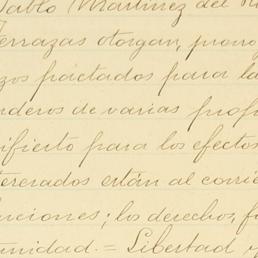 Pablo Martinez del R
Terrazas otorgan, prorro
azos pactados para la
nderos de varias prop
ifiesto para los efectos
teresados están al corrie
uciones; los derechos, f
unidad.= Libertad y